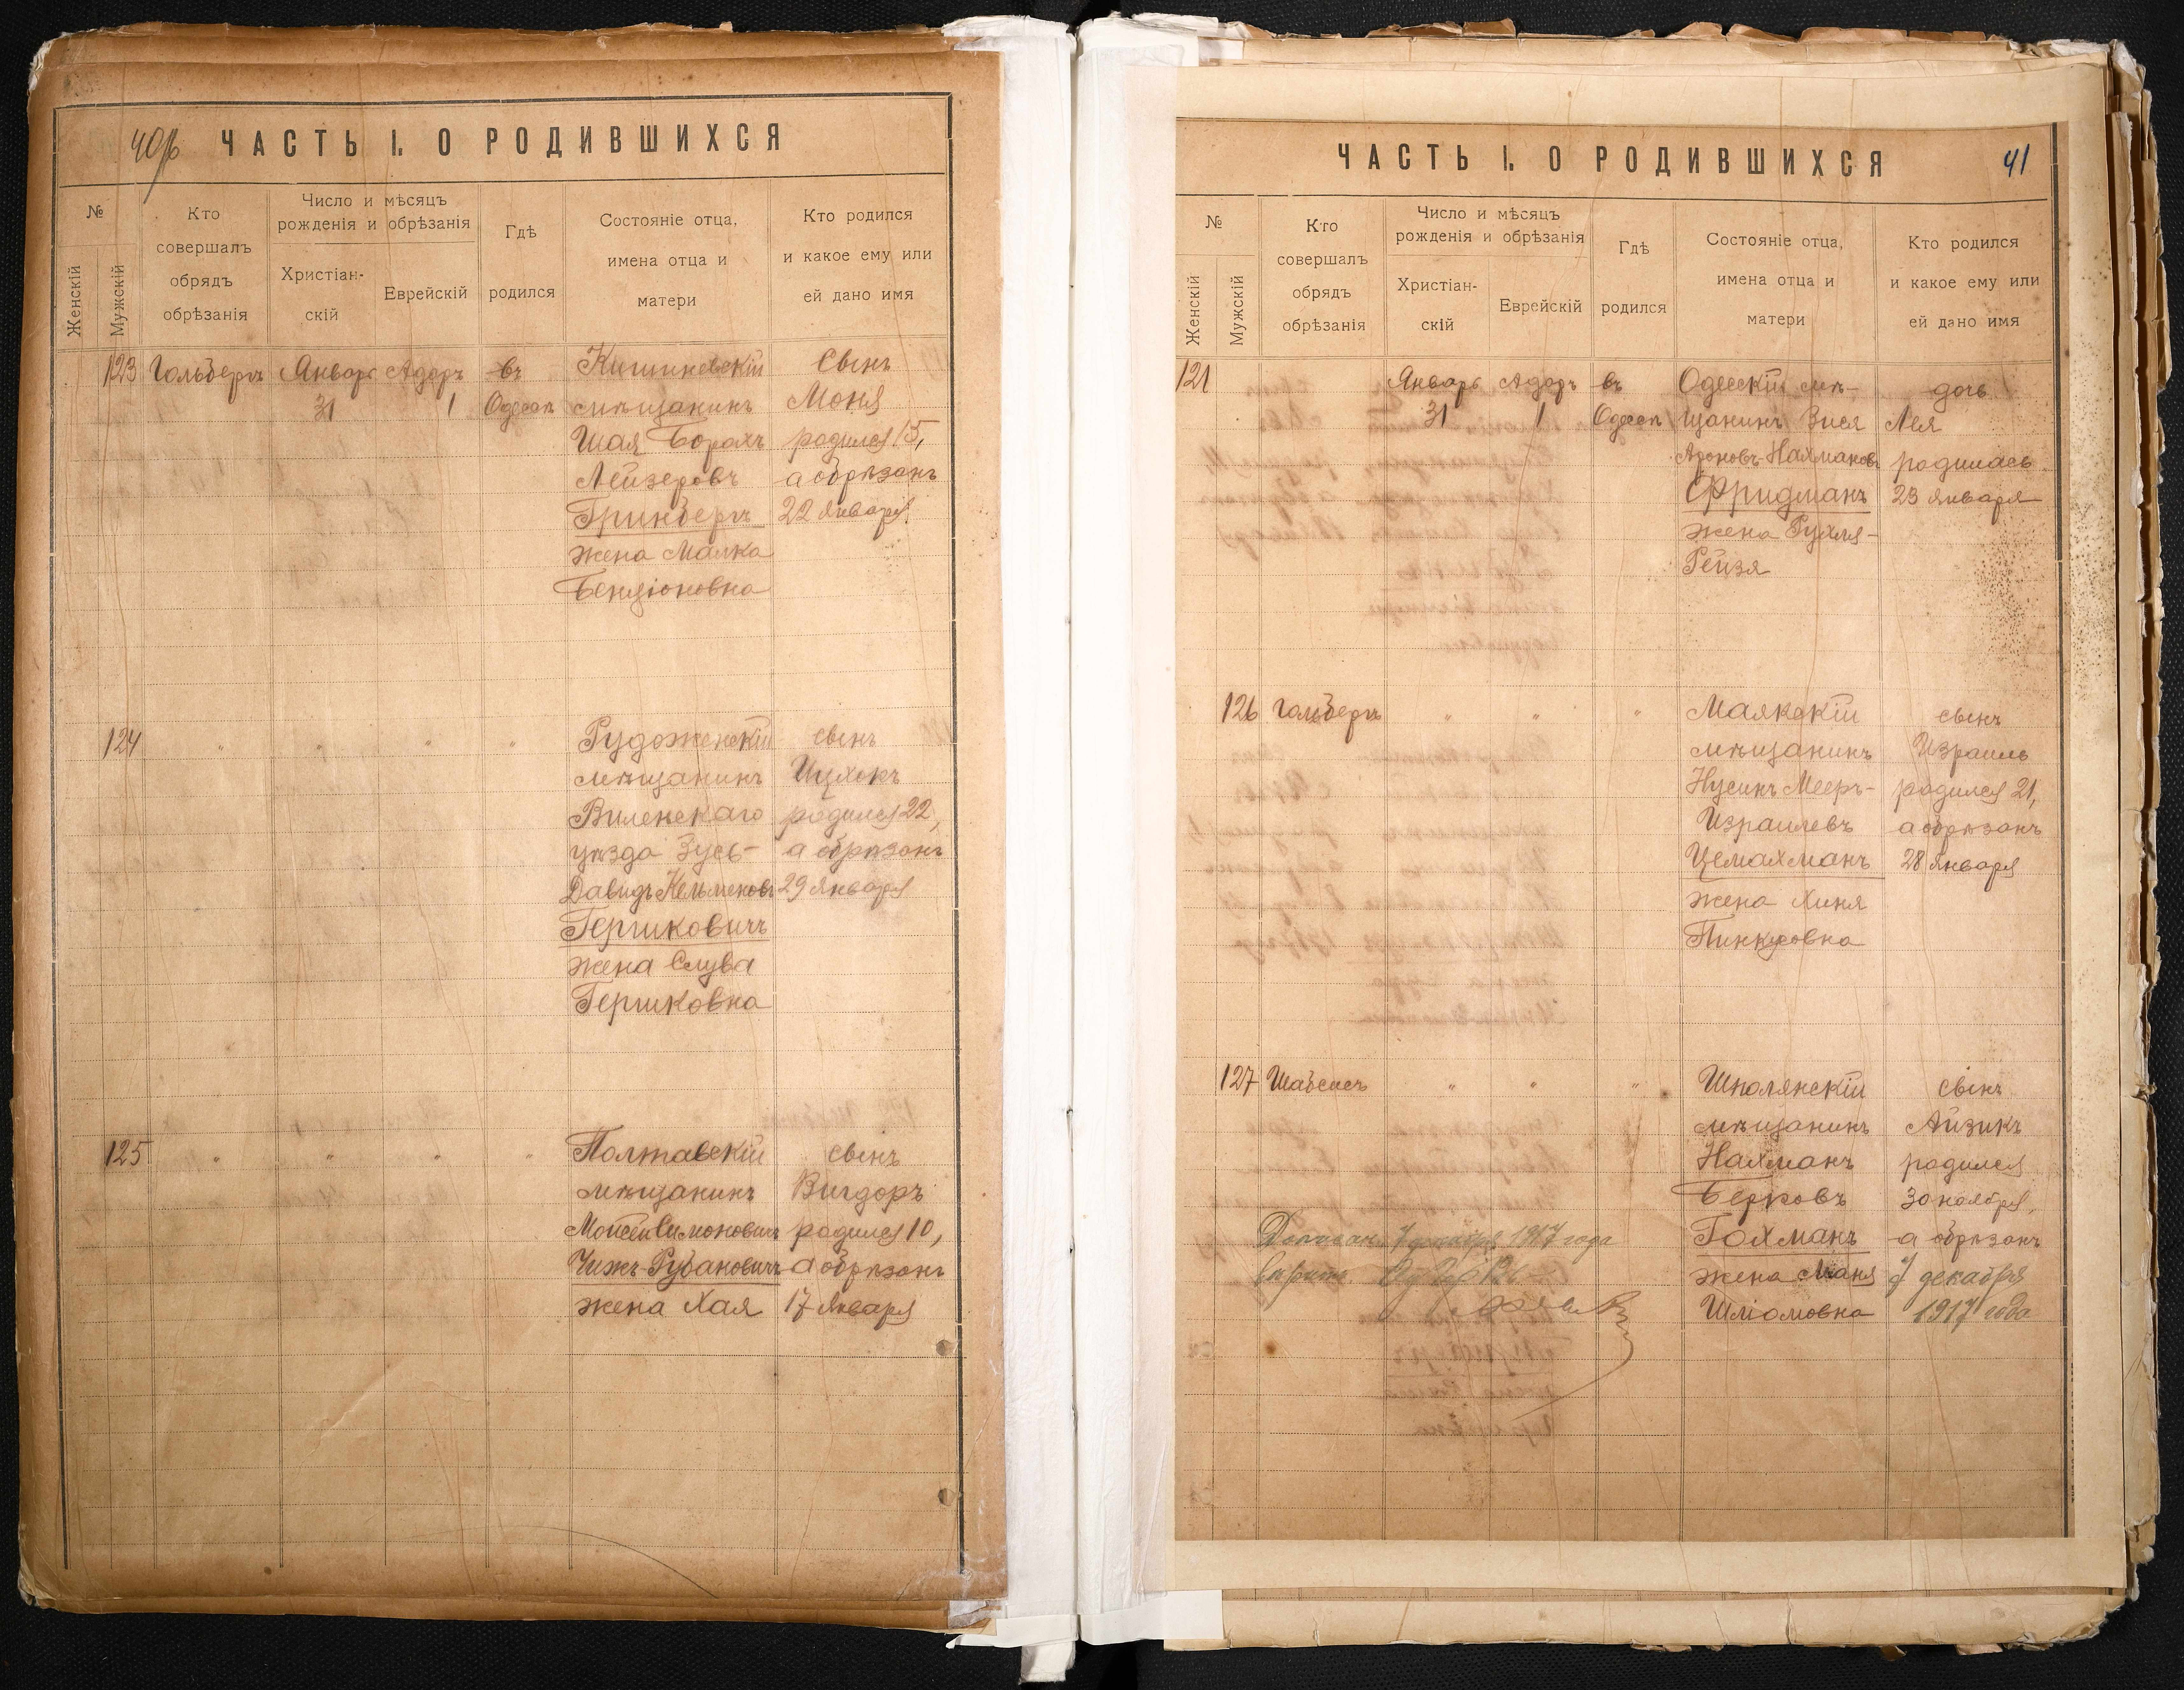 40 об
ЧАСТЬ I. О РОДИВШИХСЯ
№
Женскій
Мужскій
Кто
совершалъ
обрядъ
обрѣзанія
Число и мѣсяцъ
рожденія и обрѣзанія
Христіан-
скій
Еврейскій
Гдѣ
родился
Состояніе отца,
имена отца и
матери
Кто родился
и какое ему или
ей дано имя
123 Гольбергъ Январь Адаръ въ Кишиневскій Сынъ
31 1 Одессѣ мѣщанинъ Моня
Шая Борахъ родился 15,
Лейзеровъ а обрѣзанъ
Гринбергъ 22 Января
жена Малка
Бенціоновна
124 " " " " сынъ
мѣщанинъ Ицхокъ
Виленскаго родился 22,
уѣзда Зусь- а обрѣзанъ
Давидъ Кельменовъ 29 Января
Гершковичъ
жена Слува
Гершковна
125 " " " " Полтавскій сынъ
мѣщанинъ Вигдоръ
Мойсей Симоновичъ родился 10,
Чижъ-Рубановичъ а обрѣзанъ
жена Хая 17 Января
ЧАСТЬ I. О РОДИВШИХСЯ
41
№
Женскій
Мужскій
Кто
совершалъ
обрядъ
обрѣзанія
Число и мѣсяцъ
рожденія и обрѣзанія
Христіан-
скій
Еврейскій
Гдѣ
родился
Состояніе отца,
имена отца и
матери
Кто родился
и какое ему или
ей дано имя
121 Январь Адаръ въ Одесскій мѣ- дочь
31 1 Одессѣ щанинъ Зися Лея
Ароновъ-Нахмановъ родилась
Фридманъ 23 Января
жена Рухля-
Рейзя
126 Гольбергъ " " " Маякскій сынъ
мѣщанинъ Израиль
Нусинъ Мееръ- родился 21,
Израилевъ а обрѣзанъ
Цемахманъ 28 Января
жена Хиня
Пинкусовна
127 Шабсисъ " " " Шполянскій сынъ
мѣщанинъ Айзикъ
Нахманъ родился
Берковъ 30 ноября,
7 декабря 1917 года Гохманъ а обрѣзанъ
жена Маня 7 декабря
Шліомовна 1917 года